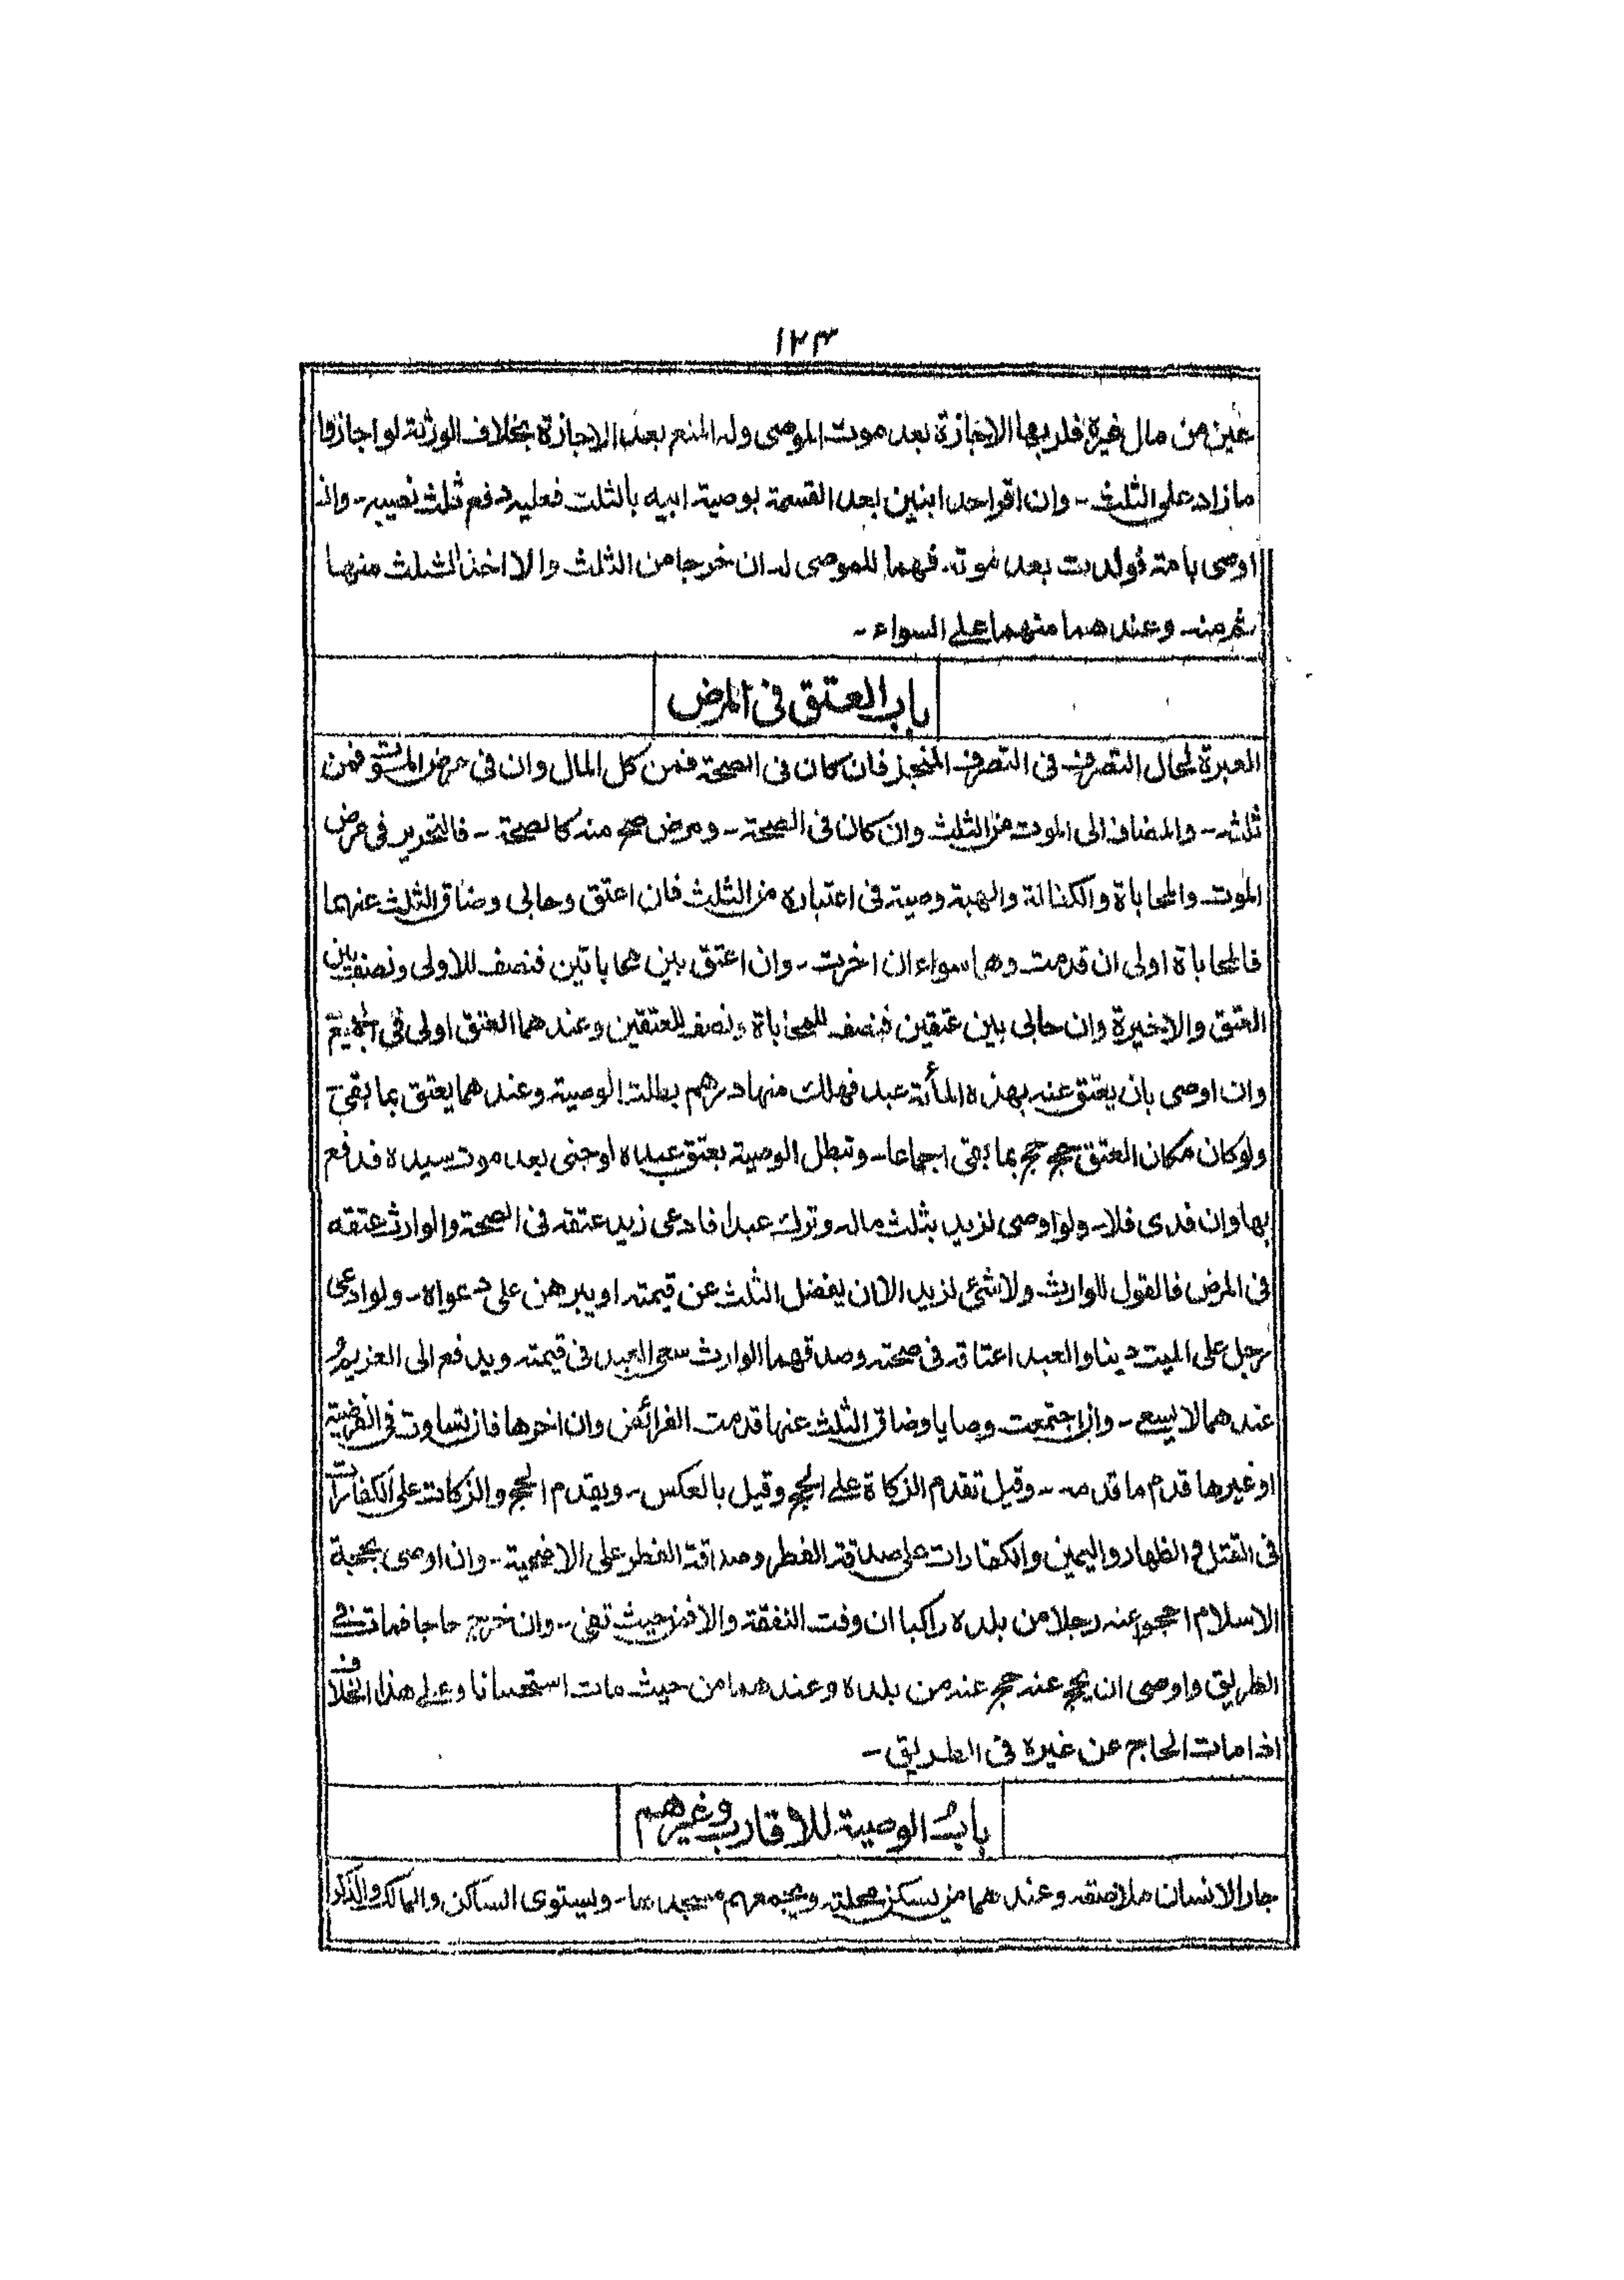 ١٢٣
عين من مال غيره فلربها الاجازة بعد موت الموصى وله المنع بعد الاجازة بخلاف الورثة لو اجازوا
ما زاد على الثلث - وان اقر احد ابنين بعد القسمة بوصية ابيه بالثلث فعليه دفع ثلث نصيبه - وان
اوصى بامة فولدت بعد موته فهما للموصى له ان خرجا من الثلث والا اخذ الثلث منها
ثم منه - وعندهما منهما على السواء -
باب العتق فى المرض
العبرة لحال التصرف فى التصرف المنجز فان كان فى الصحة فمن كل المال وان فى مرض الموت فمن
ثلثه - والمضاف الى الموت من الثلث وان كان فى الصحة - ومرض صح منه كالصحة - فالتحرير فى مرض
الموت والمحاباة والكفالة والهبة وصية فى اعتباره من الثلث فان اعتق وحابى وضاق الثلث عنهما
فالمحاباة اولى ان قدمت وهما سواء ان اخرت - وان اعتق بين محاباتين فنصف للاولى ونصف بين
العتق والاخيرة وان حابى بين عتقين فنصف للمحاباة ونصف للعتقين وعندهما العتق اولى فى الجميع
وان اوصى بان يعتق عنه بهذه المأئة عبد فهلك منها درهم بطلت الوصية وعندهما يعتق بما بقى
ولو كان مكان العتق حج حج بما بقى اجماعا - وتبطل الوصية بعتق عبده لو جنى بعد موت سيده فدفع
بها وان فدى فلا - ولو اوصى لزيد بثلث ماله وترك عبدا فادعى زيد عتقه فى الصحة والوارث عتقه
فى المرض فالقول للوارث ولا شئ لزيد الا ان يفضل الثلث عن قيمته او يبرهن على دعواه - ولو ادعى
رجل على الميت دينا والعبد اعتاقه فى صحته وصدقهما الوارث سعى العبد فى قيمته ويدفع الى الغريم و
عندهما لا يسع - وان اجتمعت وصايا وضاق الثلث عنها قدمت الفرائض وان اخرها فان تساوت فى الفرضية
او غيرها قدم ما قدمه - وقيل تقدم الزكاة على الحج وقيل بالعكس - ويقدم الحج والزكات على الكفارات
فى القتل و الظهار واليمين والكفارات على صدقة الفطر وصدقة الفطر على الاضحية - وان اوصى بحجة
الاسلام احجوا عنه رجلا من بلده راكبا ان وفت النفقة والا فمن حيث تفى - وان خرج حاجا فمات فى
الطريق واوصى ان يحج عنه حج عنه من بلده وعندهما من حيث مات استحسانا وعلى هذا الخلاف
اذا مات الحاج عن غيره فى الطريق -
باب الوصية للاقارب وغيرهم
جار الانسان ملاصقه وعندهما من يسكن محلته ويجمعهم مسجدها - ويستوى الساكن والمالك والذكر